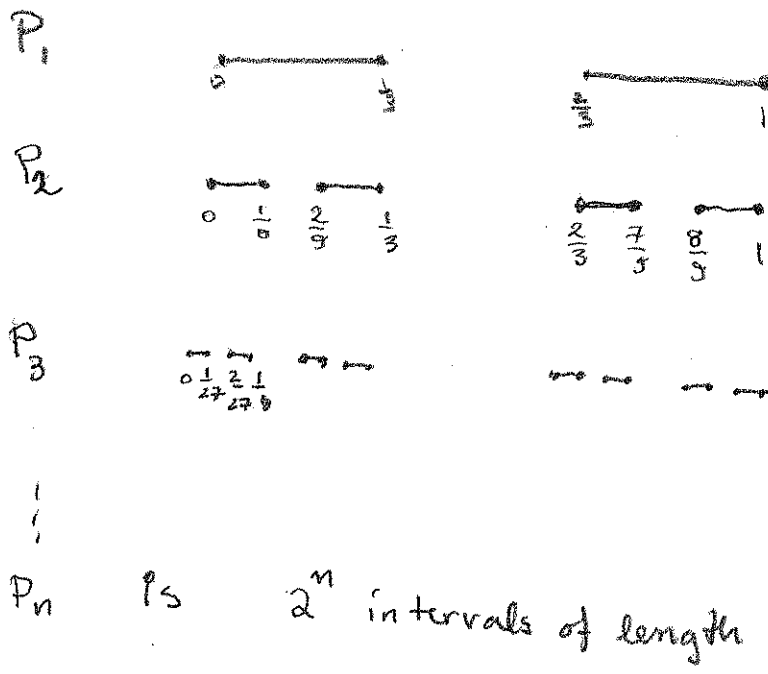 P₁
0 1/3 2/3 1
P₂
0 1/9 2/9 1/3 2/3 7/9 8/9 1
P₃
0 1/27 2/27 1/9
Pₙ is 2ⁿ intervals of length